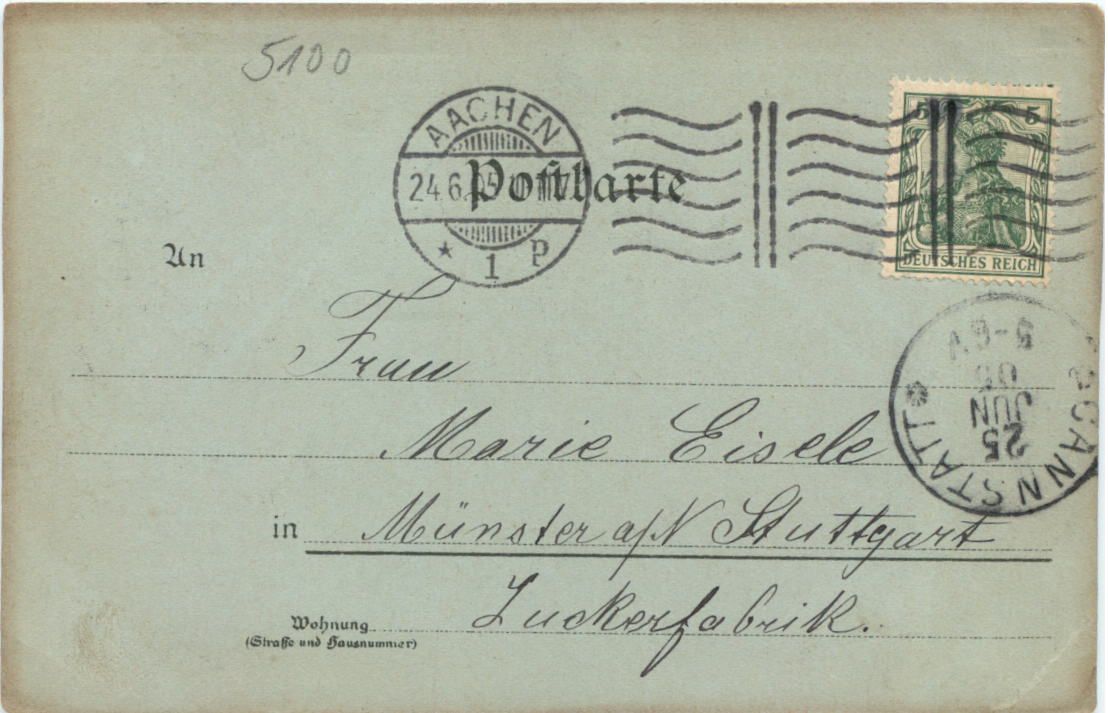 5100
AACHEN
24.6.05
★ 1 P
Postkarte
5 5
DEUTSCHES REICH
An
Frau
CANNSTATT
25
JUN
05
5-6 V
Marie Eisele
in Münster a/N Stuttgart
Wohnung
(Straße und Hausnummer)
Zuckerfabrik.